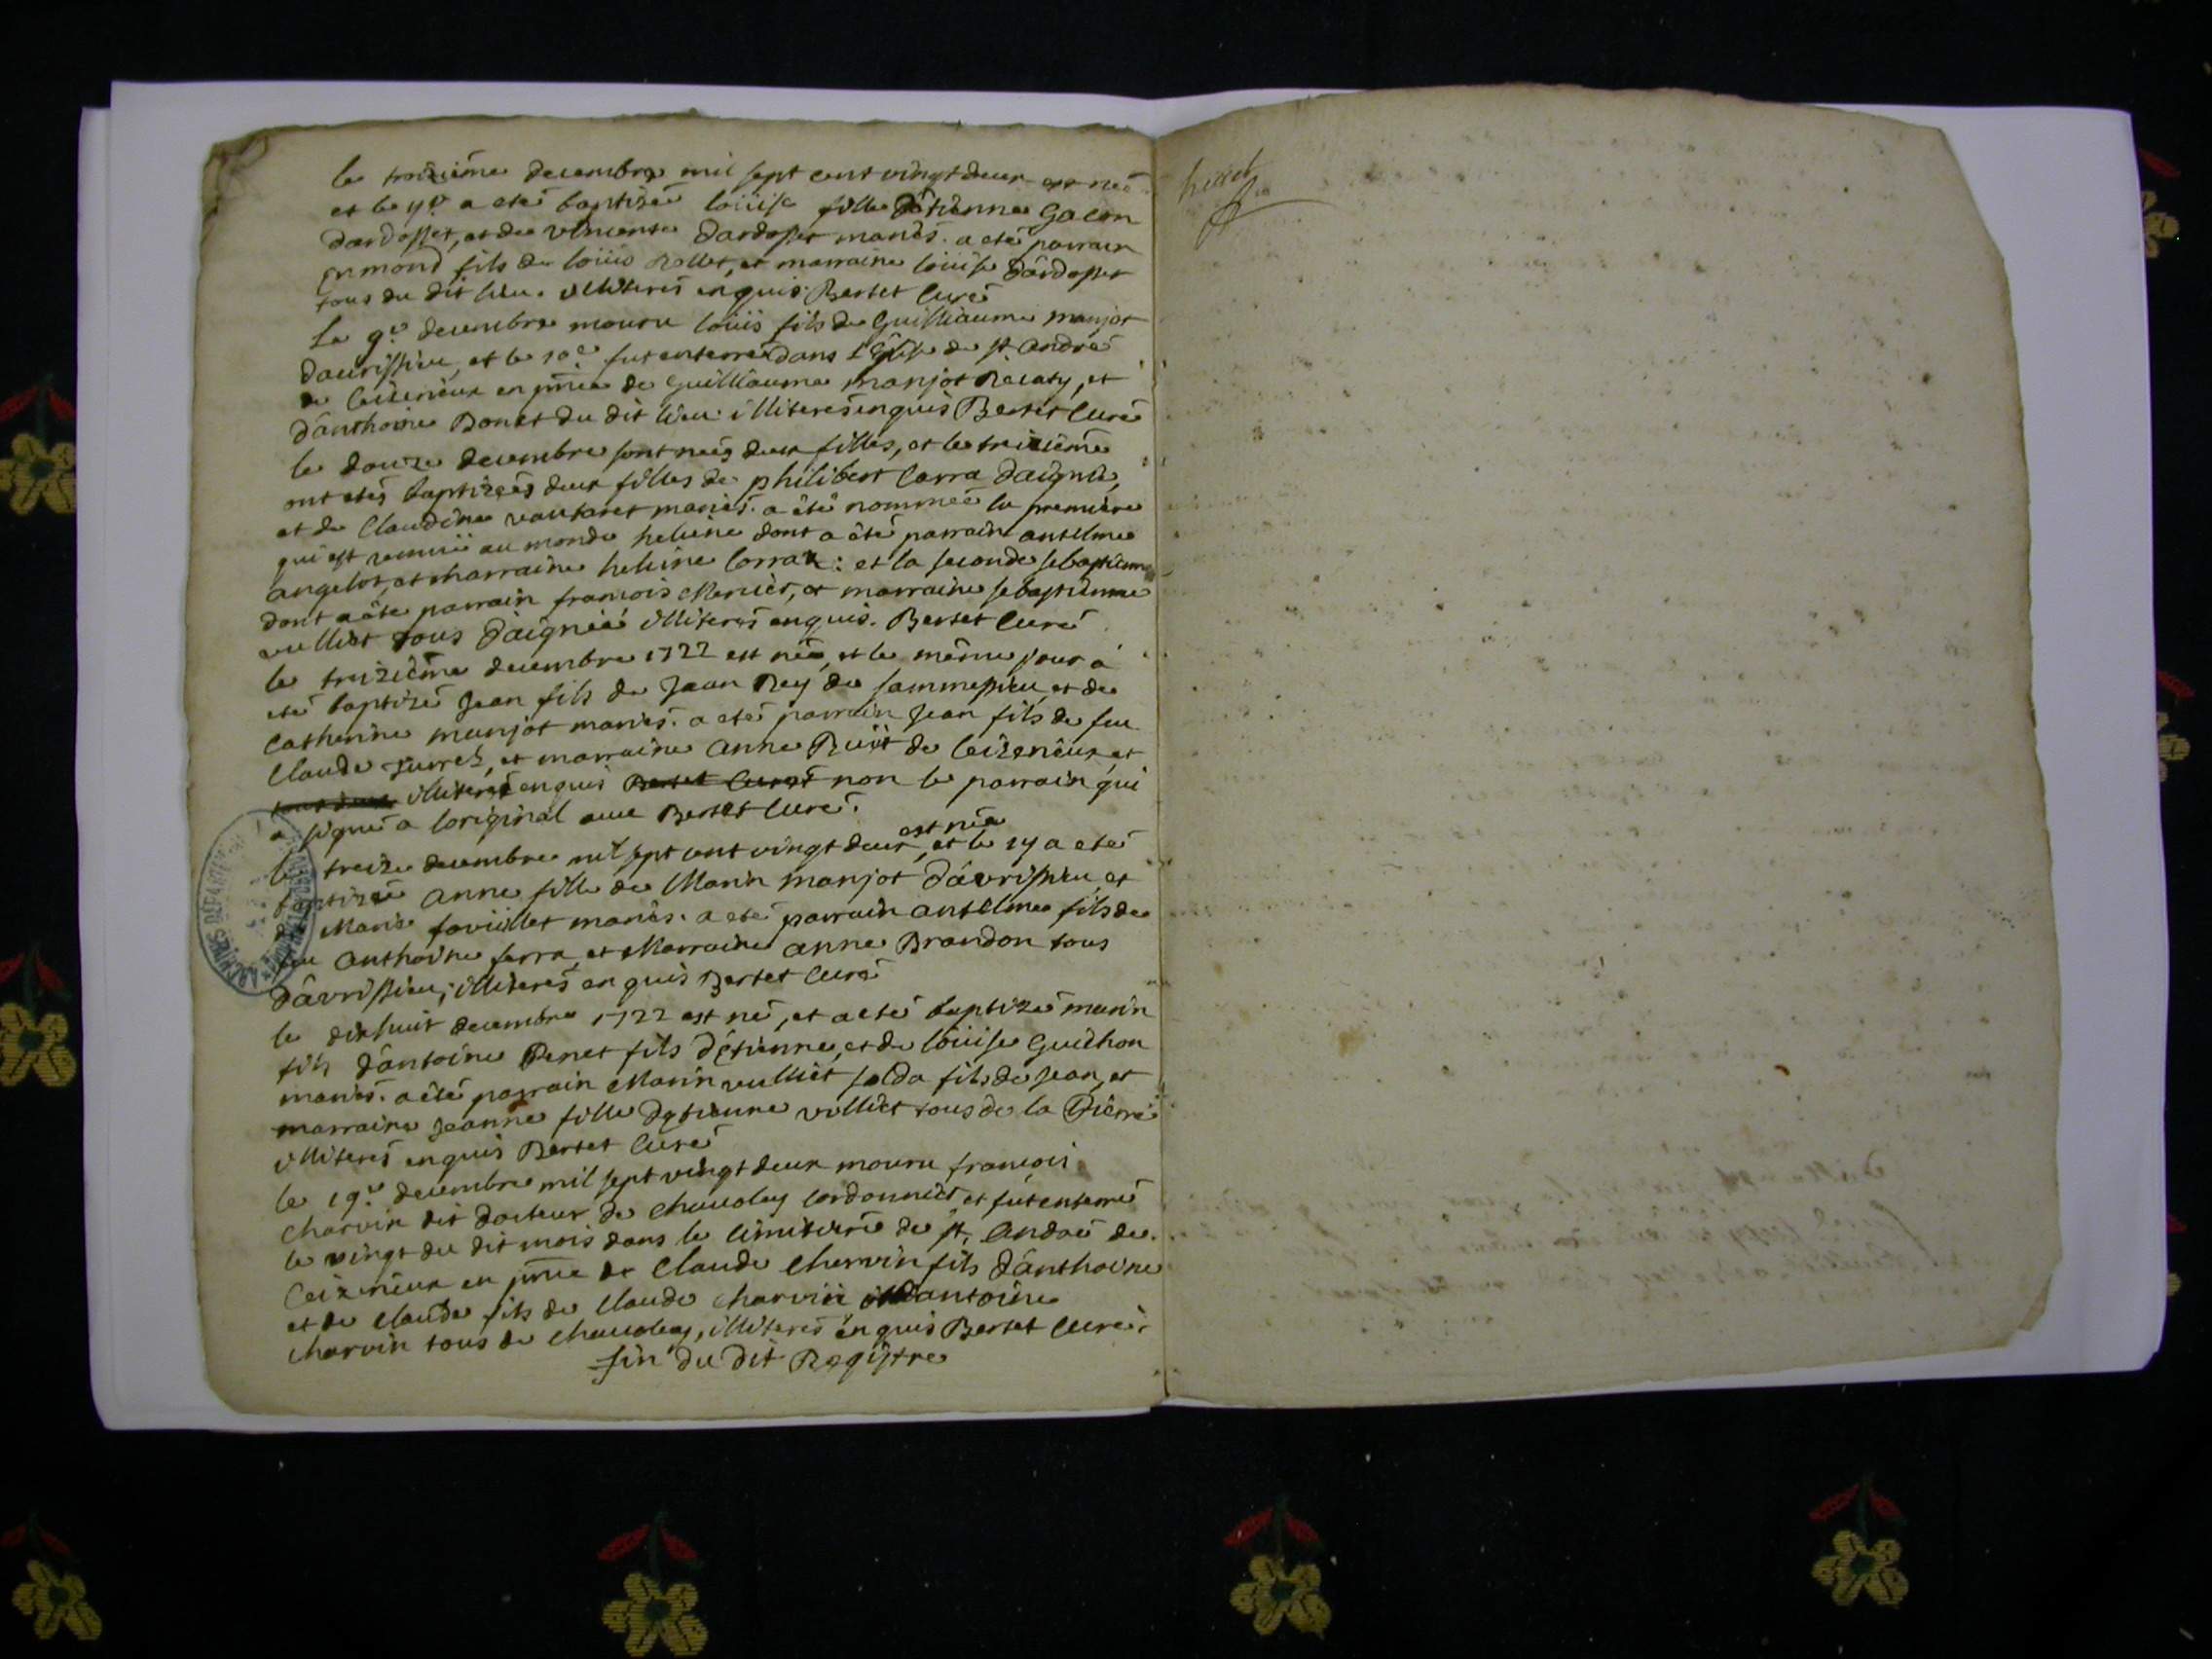 le troisième decembre mil sept cent vingt deux est née
et le 4e a eté baptizée loüise fille d'étienne Gacon
dardosset, et de vincente dardosset mariés. a eté parrain
Enmond fils de loüis Rollet, et marraine loüise dardosset
tous du dit lieu. illiterés enquis. Bertet Curé
Le 9e decembre mouru loüis fils de Guilliaume manjot
d'avrissieu, et le 10e fut enterré dans l'Eglise de st. andré
de Ceizerieux en pñce de Guilliaume manjot Recaty, et
d'anthoine Bonet du dit lieu. illiterés enquis Bertet Curé
le douze decembre sont nées deux filles, et le treizième
ont etés baptizées deux filles de philibert Carra d'aignié,
et de Claudine vautaret mariés. a été nommée la premiere
qui est venuë au monde heleine dont a été parrain antelme
angelot, et marraine heleine Carra: et la seconde sebastienne
dont a été parrain francois Meriet, et marraine sebastienne
vulliet tous d'aignié illiterés enquis. Bertet Curé
le treizième decembre 1722 est né, et le même jour a
eté baptizé Jean fils de Jean Rey de sammessieu, et de
Catherine manjot mariés. a eté parrain Jean fils de feu
Claude Jurret, et marraine anne Ruit de Ceizerieux, et
illiterés enquis Bertet Curé non le parrain qui
a signé a l'original avec Bertet Curé.
le treize decembre mil sept cent vingt deux est née, et le 14 a eté
baptizée anne fille de Marin manjot d'avrissieu, et
de Marie favüillet mariés. a eté parrain antelme fils de
feu anthoine ferra, et Marraine anne Brandon tous
d'avrissieu; illiterés enquis Bertet Curé
le dixhuit decembre 1722 est né, et a eté baptizé marin
fils d'antoine Penet fils d'étienne, et de loüise Guichon
mariés. a été parrain Marin vulliet solda fils de Jean, et
marraine Jeanne fille d'etienne vulliet tous de la Pierre
illiterés enquis Bertet Curé
le 19e decembre mil sept vingt deux mouru françois
Charvin dit docteur de Chavoley cordonnier et fut enterré
le vingt du dit mois dans le cimitiere de st. andré de
Ceizerieux en pñce de Claude Charvin fils d'anthoine
et de Claude fils de Claude Charvin antoine
Charvin tous de Chavoley, illiterés enquis Bertet Curé.
fin du dit Registre